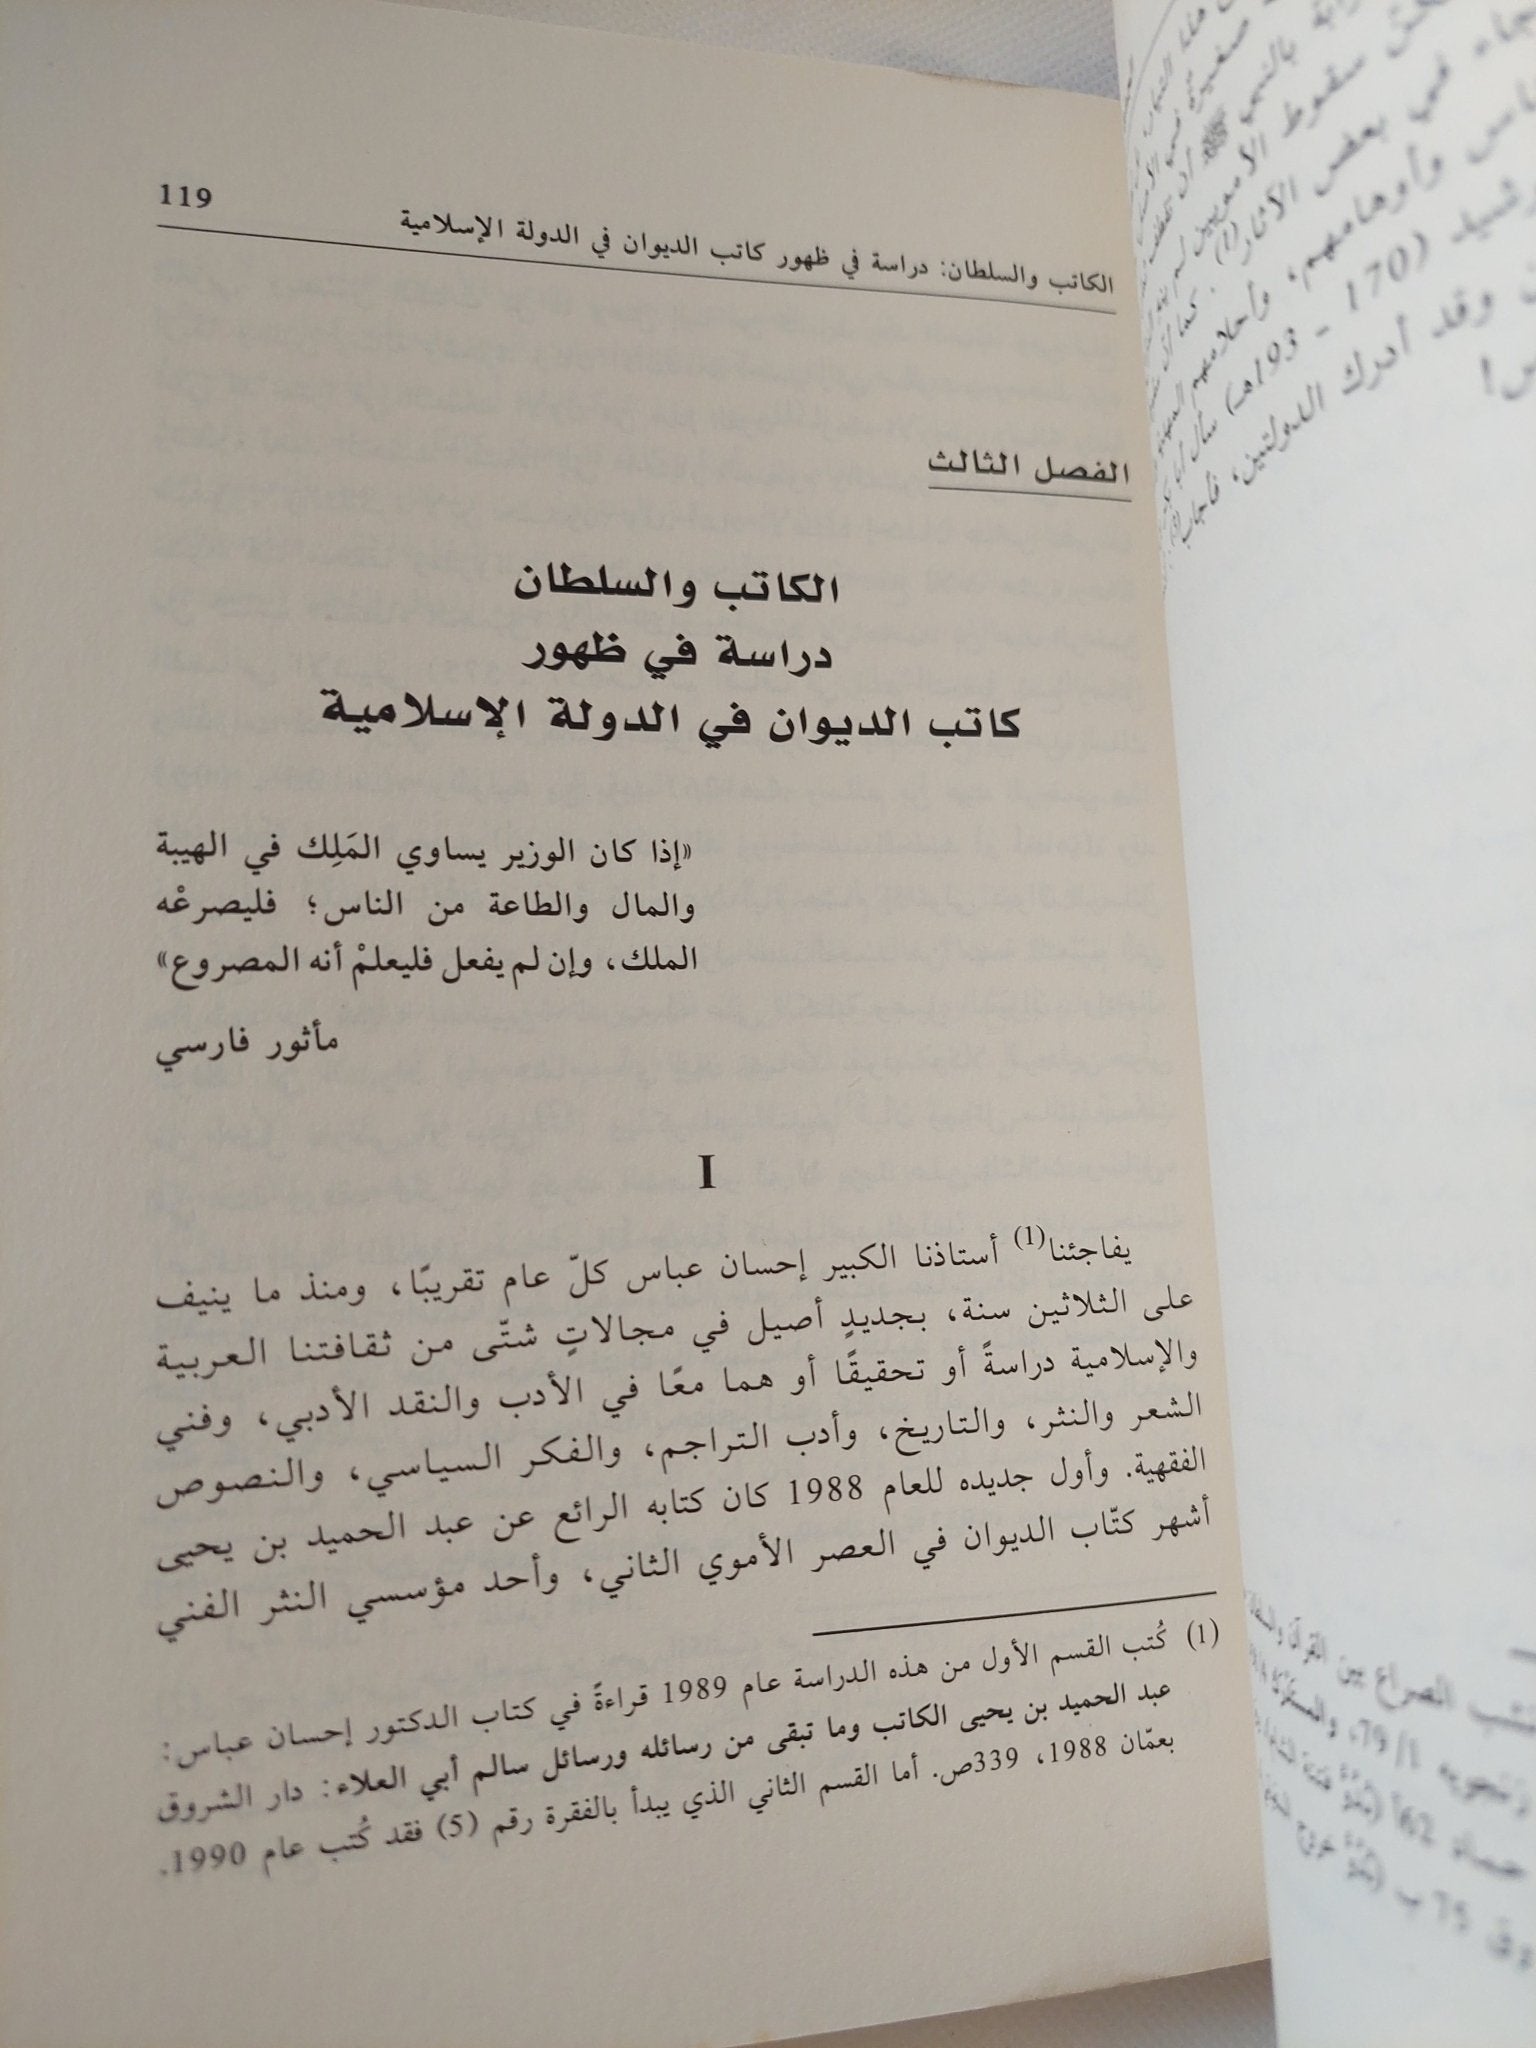 الكاتب والسلطان: دراسة في ظهور كاتب الديوان في الدولة الإسلامية 119
الفصل الثالث
الكاتب والسلطان
دراسة في ظهور
كاتب الديوان في الدولة الإسلامية
«إذا كان الوزير يساوي المَلِك في الهيبة
والمال والطاعة من الناس؛ فليصرعْه
الملك، وإن لم يفعل فليعلمْ أنه المصروع»
مأثور فارسي
I
يفاجئنا(1) أستاذنا الكبير إحسان عباس كلّ عام تقريبًا، ومنذ ما ينيف
على الثلاثين سنة، بجديدٍ أصيل في مجالاتٍ شتّى من ثقافتنا العربية
والإسلامية دراسةً أو تحقيقًا أو هما معًا في الأدب والنقد الأدبي، وفني
الشعر والنثر، والتاريخ، وأدب التراجم، والفكر السياسي، والنصوص
الفقهية. وأول جديده للعام 1988 كان كتابه الرائع عن عبد الحميد بن يحيى
أشهر كتّاب الديوان في العصر الأموي الثاني، وأحد مؤسسي النثر الفني
(1) كُتب القسم الأول من هذه الدراسة عام 1989 قراءةً في كتاب الدكتور إحسان عباس:
عبد الحميد بن يحيى الكاتب وما تبقى من رسائله ورسائل سالم أبي العلاء: دار الشروق
بعمّان 1988، 339ص. أما القسم الثاني الذي يبدأ بالفقرة رقم (5) فقد كُتب عام 1990.
سقوط الأمويين لم
في بعض الآثار(1). كما أن
وأوهامهم، وأحلامهم
(170 - 193هـ) سأل
وقد أدرك الدولتين، فأجاب
الصراع بين القرآن